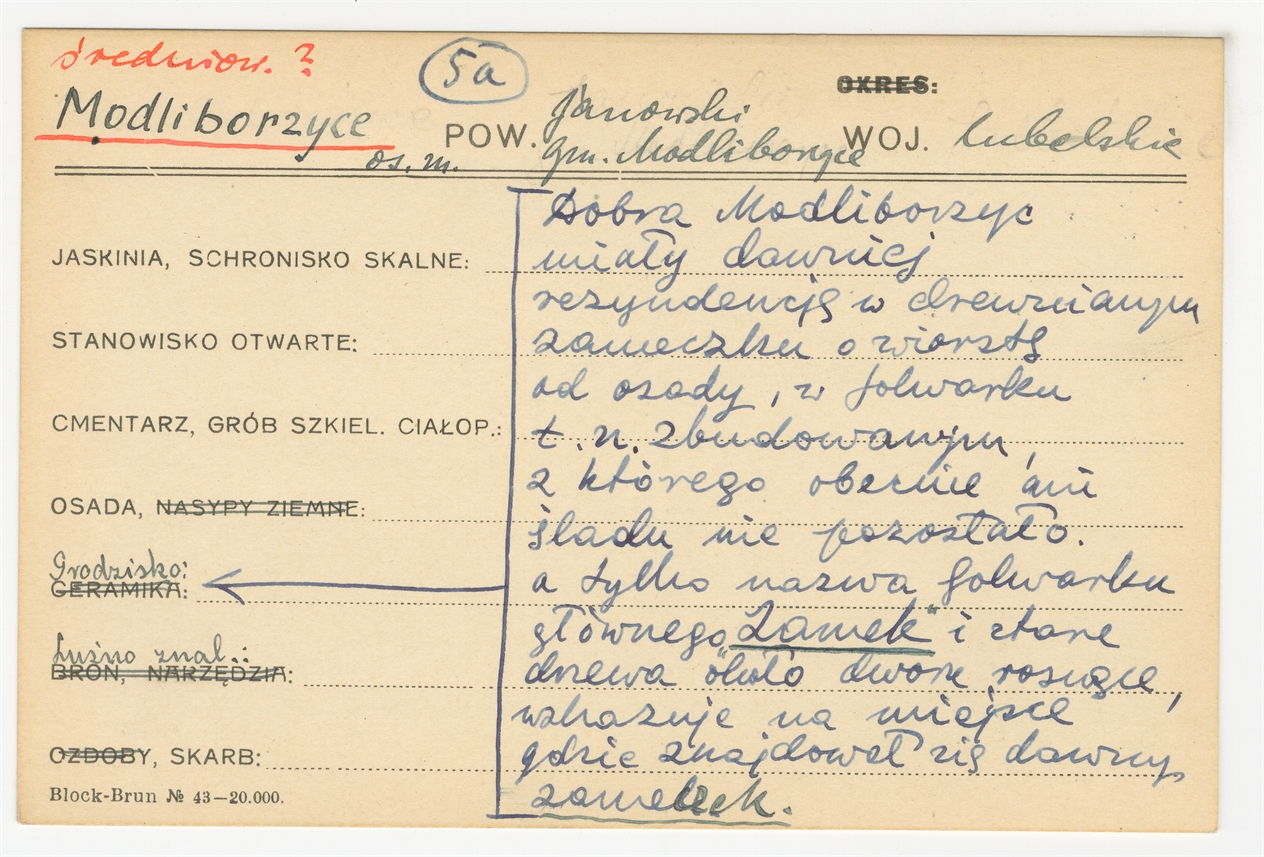 średniow. ?
5a
OKRES:
Modliborzyce
os. m.
POW. janowski
gm. Modliborzyce
WOJ. lubelskie
Dobra Modliborzyc
JASKINIA, SCHRONISKO SKALNE:
miały dawniej
rezyndencję w drewnianym
STANOWISKO OTWARTE:
zameczku o wiorstę
od osady, w folwarku
CMENTARZ, GRÓB SZKIEL. CIAŁOP.:
t. n. zbudowanym,
z którego obecnie ani
OSADA, NASYPY ZIEMNE:
śladu nie pozostało.
Grodzisko:
GERAMIKA:
a tylko nazwa folwarku
głównego „Zamek" i stare
Luźno znal.:
BROŃ, NARZĘDZIA:
drzewa około dworu rosnące,
wskazuje na miejsce
OZDOBY, SKARB:
gdzie znajdował się dawny
zameczek.
Block-Brun № 43—20.000.